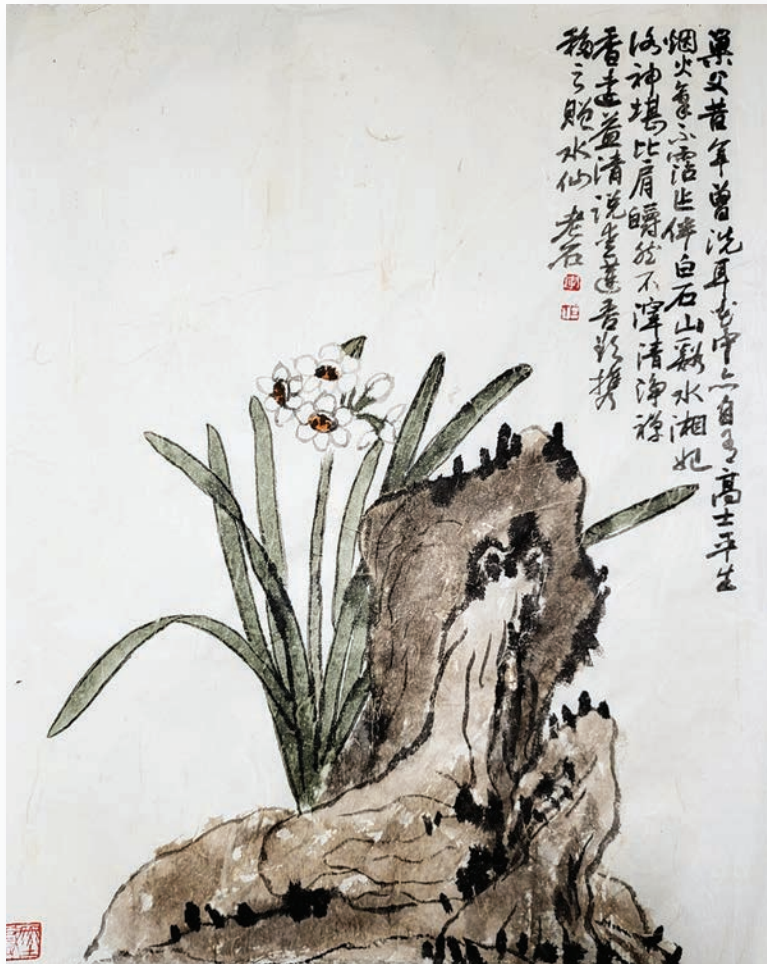 巢父昔年曾洗耳花中亦自有高士平生
烟火氣不霑止伴白石山谿水湘妃
洛神堪比肩皭然不滓清淨禅
香遠益清说爱蓮吾欲携
移之赠水仙 老石